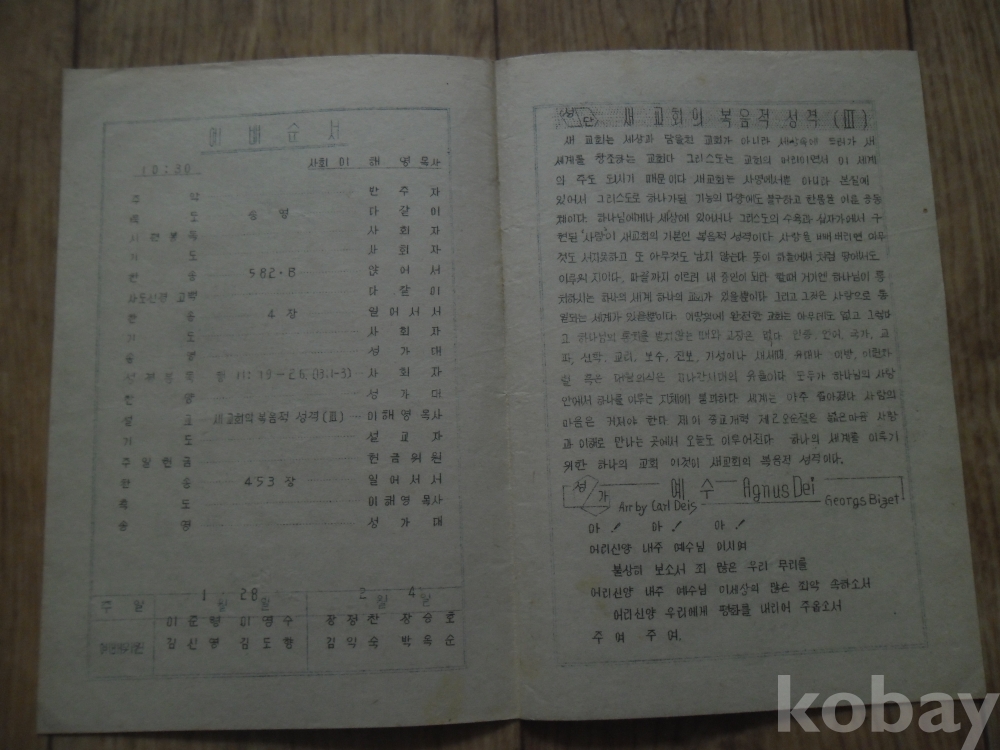 예 배 순 서
10:30 사회 이 해 영 목사
주 악 반 주 자
묵 도 송 영 다 같 이
시편봉독 사 회 자
기 도 사 회 자
찬 송 582·B 앉 어 서
사도신경 고백 다 같 이
찬 송 4 장 일 어 서 서
기 도 사 회 자
송 영 성 가 대
성 경 봉 독 사 회 자
찬 양 성 가 대
설 교 새 교회의 복음적 성격 (Ⅲ) 이 해 영 목사
기 도 설 교 자
주 일 헌 금 헌 금 위 원
찬 송 453 장 일 어 서 서
축 도 이 해 영 목사
송 영 성 가 대
주 일 1 월 28 일 2 월 4 일
이 준 형 이 영 수 장 정 찬 장 승 호
김 신 영 김 도 항 김 익 숙 박 옥 순
새 교회의 복음적 성격 (Ⅲ)
새 교회는 세상과 담을친 교회가 아니라 세상속에 새
세계를 창조하는 교회다 그리스도는 교회의 머리이면서 이 세계
의 주도 되시기 때문이다 새교회는 사명에서뿐 아니라 본질에
있어서 그리스도로 하나가된 기능의 다양에도 불구하고 한통된 이름 공동
체이다. 하나님에게나 세상에 있어거나 그리스도의 수육과 십자가에서 구
현된 "사랑"이 새교회의 기본인 복음적 성격이다 사랑을 빼버리면 아무
것도 서지못하고 또 아무것도 남지 않는다 뜻이 하늘에서 처럼 땅에서도
이루어 지이다. 땅끝까지 이르러 내 증인이 되라 할때 거기엔 하나님이 통
치하시는 하나의 세계 하나의 교회가 있을뿐이다 그리고 그것은 사랑으로 통
일되는 세계가 있을뿐이다 완전한 교회는 아무데도 없고
고 하나님의 통치를 받지않은 때와 고장은 없다 인종, 언어, 국가, 교
파, 신학, 교리, 보수, 진보, 기성이나 새시대, 유대나 이방,
될 혹은 유물이다 모두가 하나님의 사랑
안에서 하나를 이루는 지체에 불과하다 세계는 아주 좁아졌다 사람의
마음은 커져야 한다 제이 종교개혁 제2오순절은 넓은마음 사랑
과 이해로 만나는 곳에서 오늘도 이루어진다 하나의 세계를 이룩키
위한 하나의 교회 이것이 새교회의 복음적 성격이다.
성 가 예 수 Agnus Dei
Arr by Carl Deis Georgs Bizet
아! 아! 아!
어리신양 내주 예수님 이시여
불상히 보소서 죄 많은 우리 무리를
어리신양 내주 예수님 이세상의 많은 죄악 속하소서
어리신양 우리에게 평화를 내리어 주옵소서
주 여 주 여.
kobay